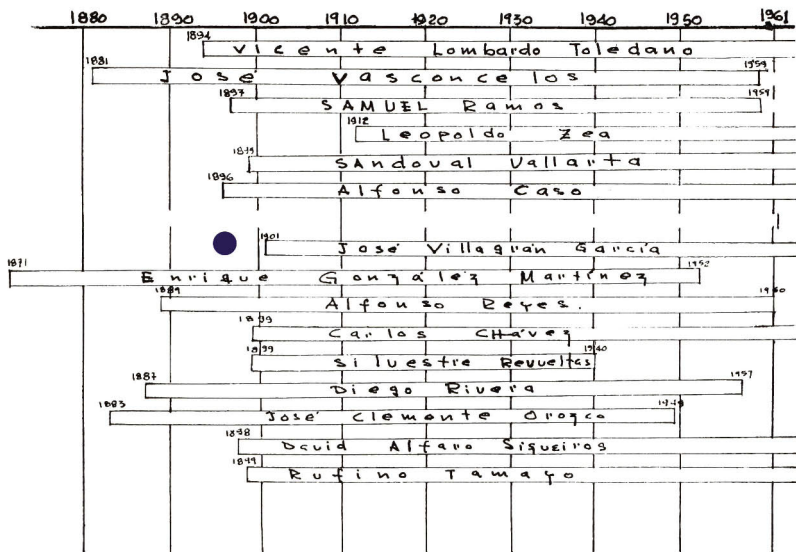 1880 1890 1900 1910 1920 1930 1940 1950 1961
1894
Vicente Lombardo Toledano
1881 1959
José Vasconcelos
1897 1959
SAMUEL Ramos
1912
Leopoldo Zea
1899
SAndoval Vallarta
1896
Alfonso Caso
1901
José Villagrán García
1871 1952
Enrique González Martínez
1889 1960
Alfonso Reyes.
1899
Carlos CHávez
1899 1940
Silvestre Revueltas
1887 1957
Diego Rivera
1883 1949
José Clemente Orozco
1898
David Alfaro Siqueiros
1899
Rufino Tamayo